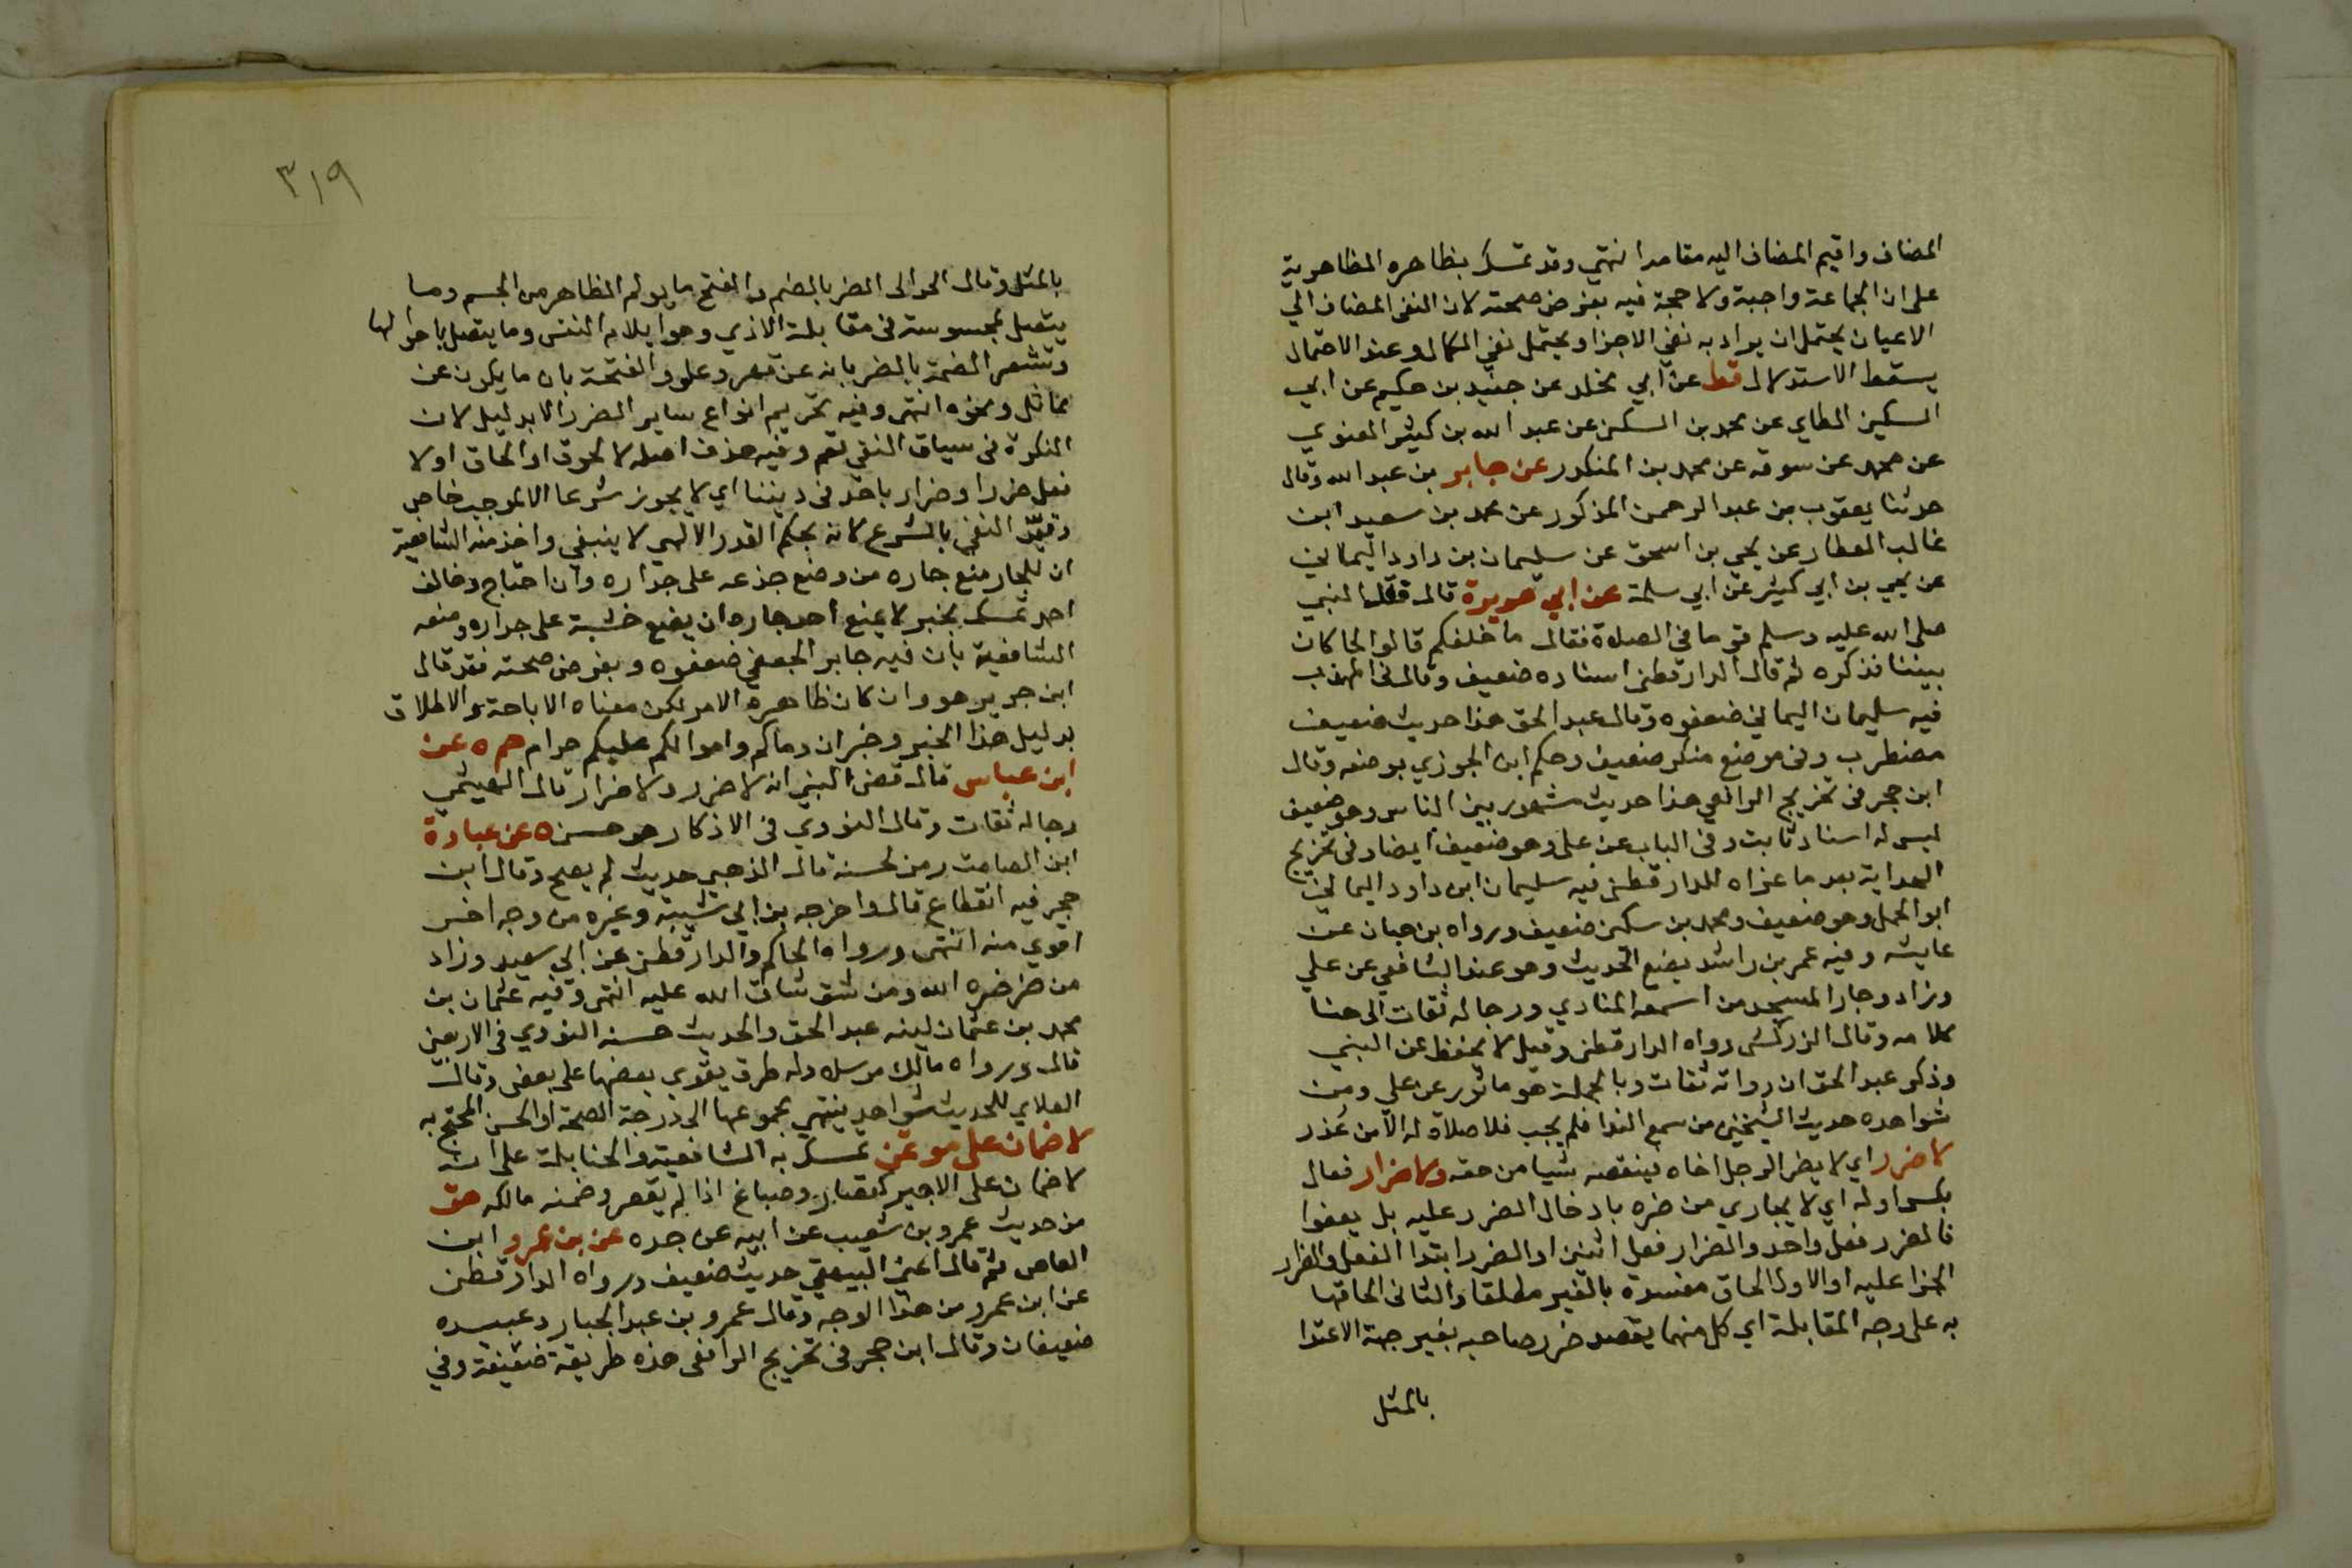 المضاف واقيم المضاف اليه مقامه انتهي وقد تمسك بظاهره الظاهرية
على ان الجماعة واجبة ولا حجة فيه بفرض صحته لان النفي المضاف الي
الاعيان يحتمل ان يراد به نفي الاجزا ويحتمل نفي الكمال وعند الاحتمال
يسقط الاستدلال قط عن ابي مخلد عن جنيد بن حكيم عن ابي
السكين الطاي عن محمد بن السكن عن عبد الله بن كثير الغنوي
عن محمد عن سوقه عن محمد بن المنكدر عن جابر بن عبد الله وقال
حدثنا يعقوب بن عبد الرحمن المذكور عن محمد بن سعيد ابن
غالب العطار عن يحي بن اسحق عن سليمان بن داود اليماني
عن يحي بن ابي كثير عن ابي سلمة عن ابي هريرة قال فقد النبي
صلى الله عليه وسلم قوما في الصلاة فقال ما خلفكم قالوا لحا كان
بيننا فذكره ثم قال الدارقطني اسناده ضعيف وقال في المهذب
فيه سليمان اليماني ضعفوه وقال عبد الحق هذا حديث ضعيف
مضطرب وفي موضع منكر ضعيف وحكم ابن الجوزي بوضعه وقال
ابن حجر في تخريج الرافعي هذا حديث مشهور بين الناس وهو ضعيف
ليس له اسناد ثابت وفي الباب عن على وهو ضعيف ايضا وفي تخريج
الهداية بعد ما عزاه للدارقطني فيه سليمان ابن داود اليماني
ابو الجمل وهو ضعيف ومحمد بن سكن ضعيف ورواه بن حبان عن
عايشه وفيه عمر بن راشد يضع الحديث وهو عند الشافعي عن علي
وزاد وجار المسجد من اسمعه المنادي ورجاله ثقات الى هنا
كلامه وقال الزركشى رواه الدارقطني وقيل لا يحفظ عن النبي
وذكر عبد الحق ان رواته ثقات وبالجملة هو ماثور عن علي ومن
شواهده حديث الشيخين من سمع الندا فلم يجب فلا صلاة له الا من عذر
لا ضرر اي لا يضر الرجل اخاه فينقصه شيا من حقه ولا ضرار فعال
بكسر اوله اي لا يجازي من ضره بادخال الضرر عليه بل يعفوا
فالضرر فعل واحد والضرار فعل اثنين او الضرر ابتدا الفعل والضرار
الجزا عليه او الاول الحاق مفسدة بالغير مطلقا والثاني الحاقها
به على وجه المقابلة اي كل منهما يقصد ضرر صاحبه بغير جهة الاعتدا
بالمثل
٣١٩
بالمثل وقال الحرالى الضر بالضم والفتح ما يولم الظاهر من الجسم وما
يتصل بمحسوسته في مقابلة الاذي وهو ايلام النفس وما يتصل باحوالها
وتشعر الضمة بالضر بانه عن قهر وعلو والفتحة بان ما يكون عن
مماثل ونحوه انتهى وفيه تحريم انواع ساير الضرر الا بدليل لان
النكرة في سياق النفي تعم وفيه حذف اصله لا لحوق او الحاق او لا
فعل ضرر او ضرار باحد في ديننا اي لا يجوز شرعا الا لموجب خاص
وقيد النفي بالشرع لانه بحكم القدر الالهي لا ينبغي واخذ منه الشافعية
ان للجار منع جاره من وضع جذعه على جداره وان احتاج وخالف
احمد تمسك بخبر لا يمنع احد جاره ان يضع خشبة على جداره ومنعه
الشافعية بان فيه جابر الجعفي ضعفوه وبفرض صحته فقد قال
ابن جرير هو وان كان ظاهره الامر لكن معناه الاباحة والاطلاق
بدليل هذا الخبر وخبر ان دماكم واموالكم عليكم حرام حم ه عن
ابن عباس قال قضى النبي انه لا ضرر ولا ضرار قال الهيثمي
رجاله ثقات وقال النووي في الاذكار هو حسن ه عن عبادة
ابن الصامت رمز لحسنه قال الذهبي حديث لم يصح وقال ابن
حجر فيه انقطاع قال واخرجه بن ابي شيبة وغيره من وجه اخر
اقوي منه انتهى ورواه الحاكم والدارقطني عن ابي سعيد وزاد
من ضر ضره الله ومن شق شاق الله عليه انتهى وفيه عثمان بن
محمد بن عثمان لينه عبد الحق والحديث حسنه النووي في الاربعين
قال ورواه مالك مرسلا وله طرق يقوي بعضها على بعض وقال
العلاي للحديث شواهد ينتهي مجموعها الى درجة الصحة او الحسن المحتج به
لا ضمان على موتمن تمسك به الشافعية والحنابلة على انه
لا ضمان على الاجير كقصار وصباغ اذا لم يقصر وضمنه مالك هق
من حديث عمرو بن شعيب عن ابيه عن جده عن بن عمرو ابن
العاص ثم قال اعني البيهقي حديث ضعيف ورواه الدارقطني
عن ابن عمرو من هذا الوجه وقال عمرو بن عبد الجبار وعبيده
ضعيفان وقال ابن حجر في تخريج الرافعى هذه طريقة ضعيفة وفي